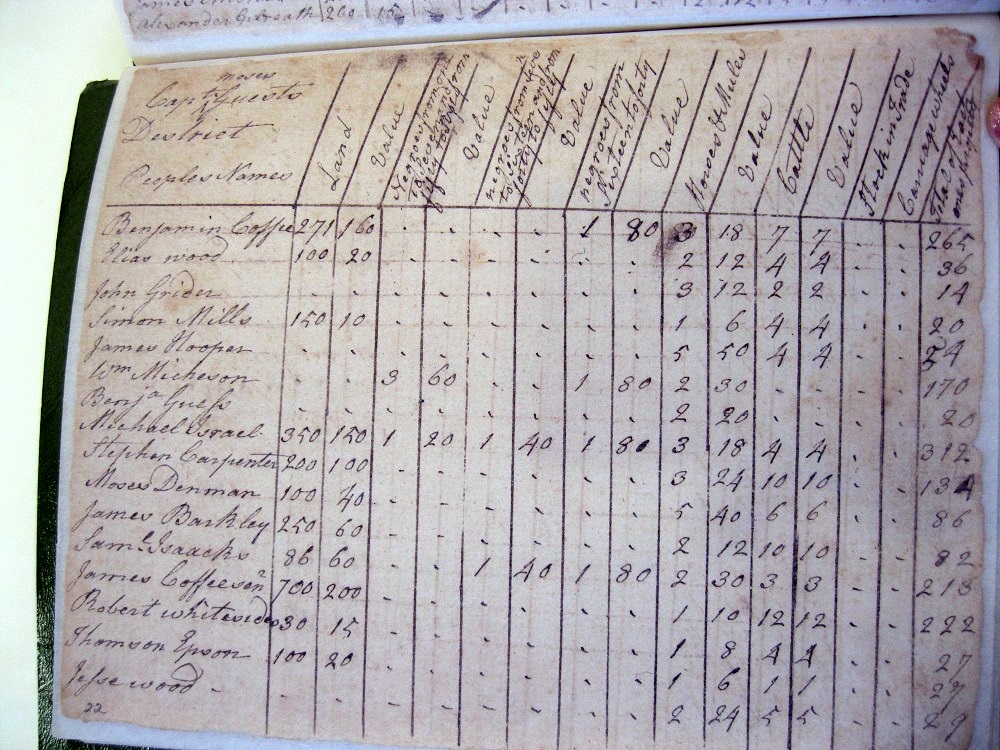 Alexander Gilreath 260 15
moses
Capt. Guests
District
Peoples Names Land Value Negroes from one to seven and from fifty to sixty Value negroes from twelve to sixteen and from forty to fifty Value negroes from sixteen to forty Value Horses & Mules Value Cattle Value Stock in Trade Carriage wheels Total of each ones property
Benjamin Coffee 271 160 . . . . 1 80 3 18 7 7 . . 265
Elias wood 100 20 . . . . . . 2 12 4 4 . . 36
John Grider . . . . . . . . 3 12 2 2 . . 14
Simon Mills 150 10 . . . . . . 1 6 4 4 . . 20
James Hooper . . . . . . . . 5 50 4 4 . . 54
Wm Micheson . . 3 60 . . 1 80 2 30 . . . . 170
Benja Guess . . . . . . . . 2 20 . . . . 20
Michael Israel 350 150 1 20 1 40 1 80 3 18 4 4 . . 312
Stephen Carpenter 200 100 . . . . . . 3 24 10 10 . . 134
Moses Denman 100 40 . . . . . . 5 40 6 6 . . 86
James Barkley 250 60 . . . . . . 2 12 10 10 . . 82
Saml Isaacks 86 60 . . 1 40 1 80 2 30 3 3 . . 213
James Coffee senr 700 200 . . . . . . 1 10 12 12 . . 222
Robert whitesides 30 15 . . . . . . 1 8 4 4 . . 27
Thomson Epson 100 20 . . . . . . 1 6 1 1 . . 27
Jesse wood - . . . . . . . . 2 24 5 5 . . 29
22